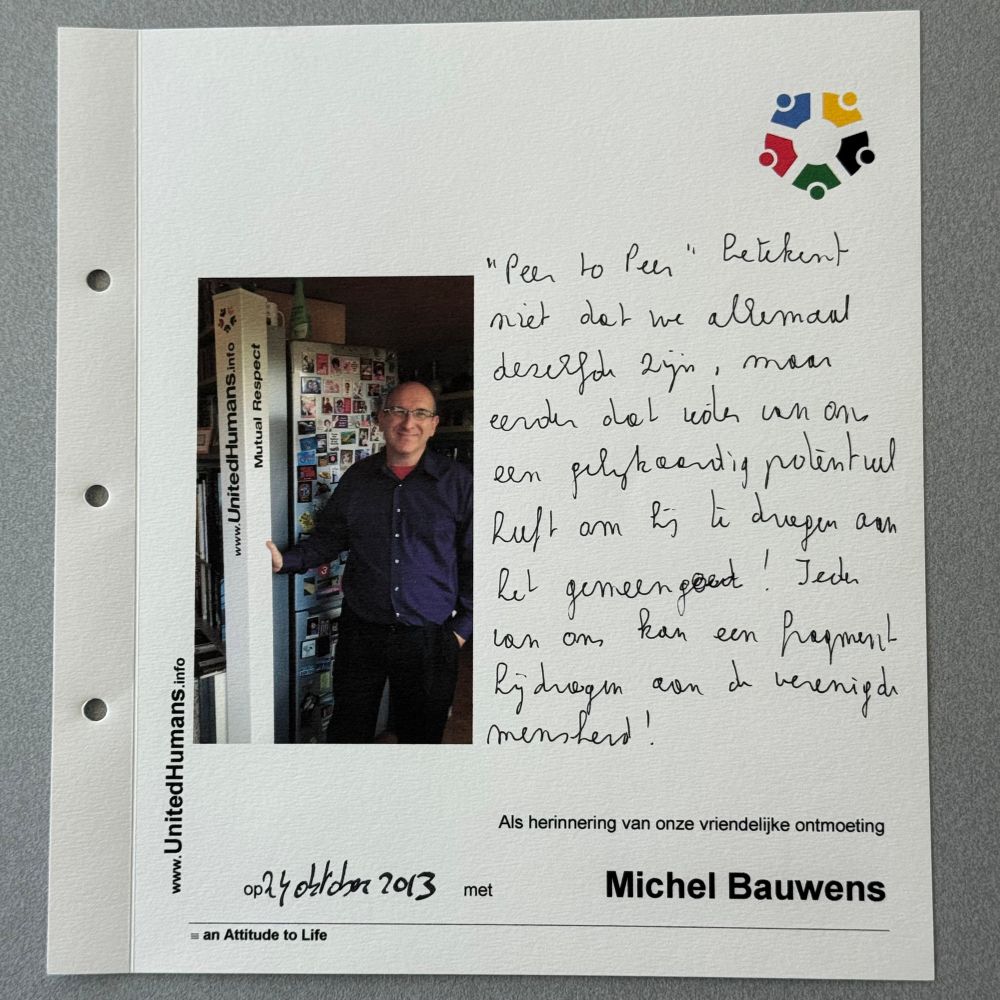 "Peer to Peer" betekent
niet dat we allemaal
dezelfde zijn, maar
eerder dat ieder van ons
een gelijkaardig potentieel
heeft om bij te dragen aan
het gemeengoed! Ieder
van ons kan een fragment
bijdragen aan de verenigde
mensheid!
www.UnitedHumans.info
Mutual Respect
www.UnitedHumans.info
Als herinnering van onze vriendelijke ontmoeting
op 24 oktober 2013 met Michel Bauwens
≡ an Attitude to Life